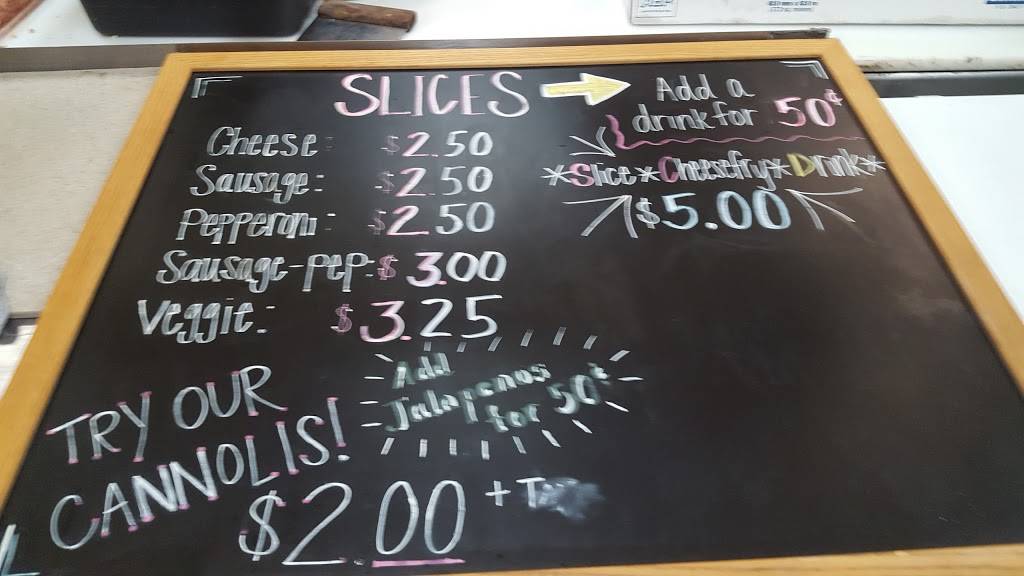 SLICES
Cheese: $2.50
Sausage: $2.50
Pepperoni: $2.50
Sausage-pep: $3.00
Veggie: $3.25
Add a
drink for 50¢
*Slice*Cheesefry*Drink*
$5.00
Add
Jalapenos
for 50¢
TRY OUR
CANNOLIS!
$2.00 + Tax